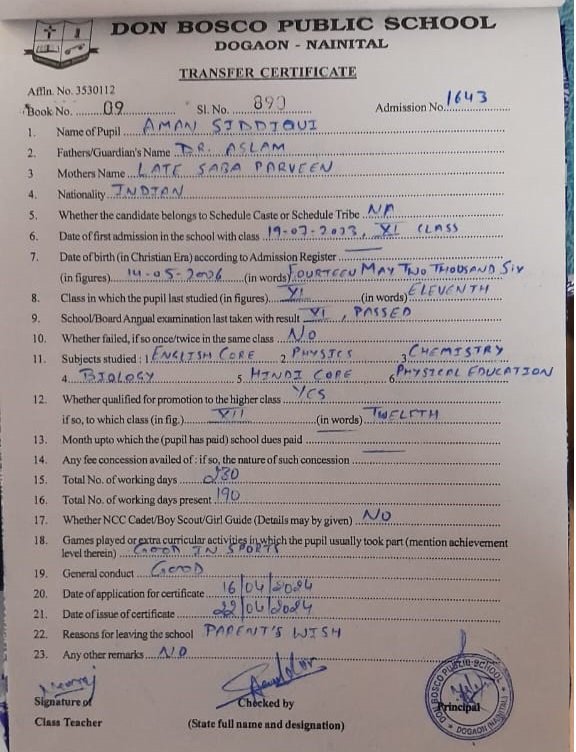 DON BOSCO PUBLIC SCHOOL
DOGAON - NAINITAL
TRANSFER CERTIFICATE
Affln. No. 3530112
Book No. ......09...... Sl. No. ......890...... Admission No. 1643
1. Name of Pupil ....AMAN SIDDIQUI
2. Fathers/Guardian's Name ..DR. ASLAM
3 Mothers Name ..LATE SABA PARVEEN
4. Nationality ..INDIAN
5. Whether the candidate belongs to Schedule Caste or Schedule Tribe ..NA
6. Date of first admission in the school with class ..19-07-2023, XI CLASS
7. Date of birth (in Christian Era) according to Admission Register
(in figures) ..14-05-2006 (in words) FOURTEEN MAY TWO THOUSAND SIX
8. Class in which the pupil last studied (in figures) ....XI.... (in words) ELEVENTH
9. School/Board Annual examination last taken with result ..XI, PASSED
10. Whether failed, if so once/twice in the same class ..NO
11. Subjects studied : 1 ENGLISH CORE 2 PHYSICS 3 CHEMISTRY
4 BIOLOGY 5 HINDI CORE 6 PHYSICAL EDUCATION
12. Whether qualified for promotion to the higher class ..YES
if so, to which class (in fig.) ....XII.... (in words) ..TWELFTH
13. Month upto which the (pupil has paid) school dues paid ....
14. Any fee concession availed of : if so, the nature of such concession ....
15. Total No. of working days ....230
16. Total No. of working days present ..190
17. Whether NCC Cadet/Boy Scout/Girl Guide (Details may by given) ..NO
18. Games played or extra curricular activities in which the pupil usually took part (mention achievement
level therein) ..GOOD IN SPORTS
19. General conduct ..GOOD
20. Date of application for certificate ..16/04/2024
21. Date of issue of certificate ..22/04/2024
22. Reasons for leaving the school PARENT'S WISH
23. Any other remarks ..NO
Signature of Checked by Principal
Class Teacher (State full name and designation)
DON BOSCO PUBLIC SCHOOL
DOGAON (NAINITAL)